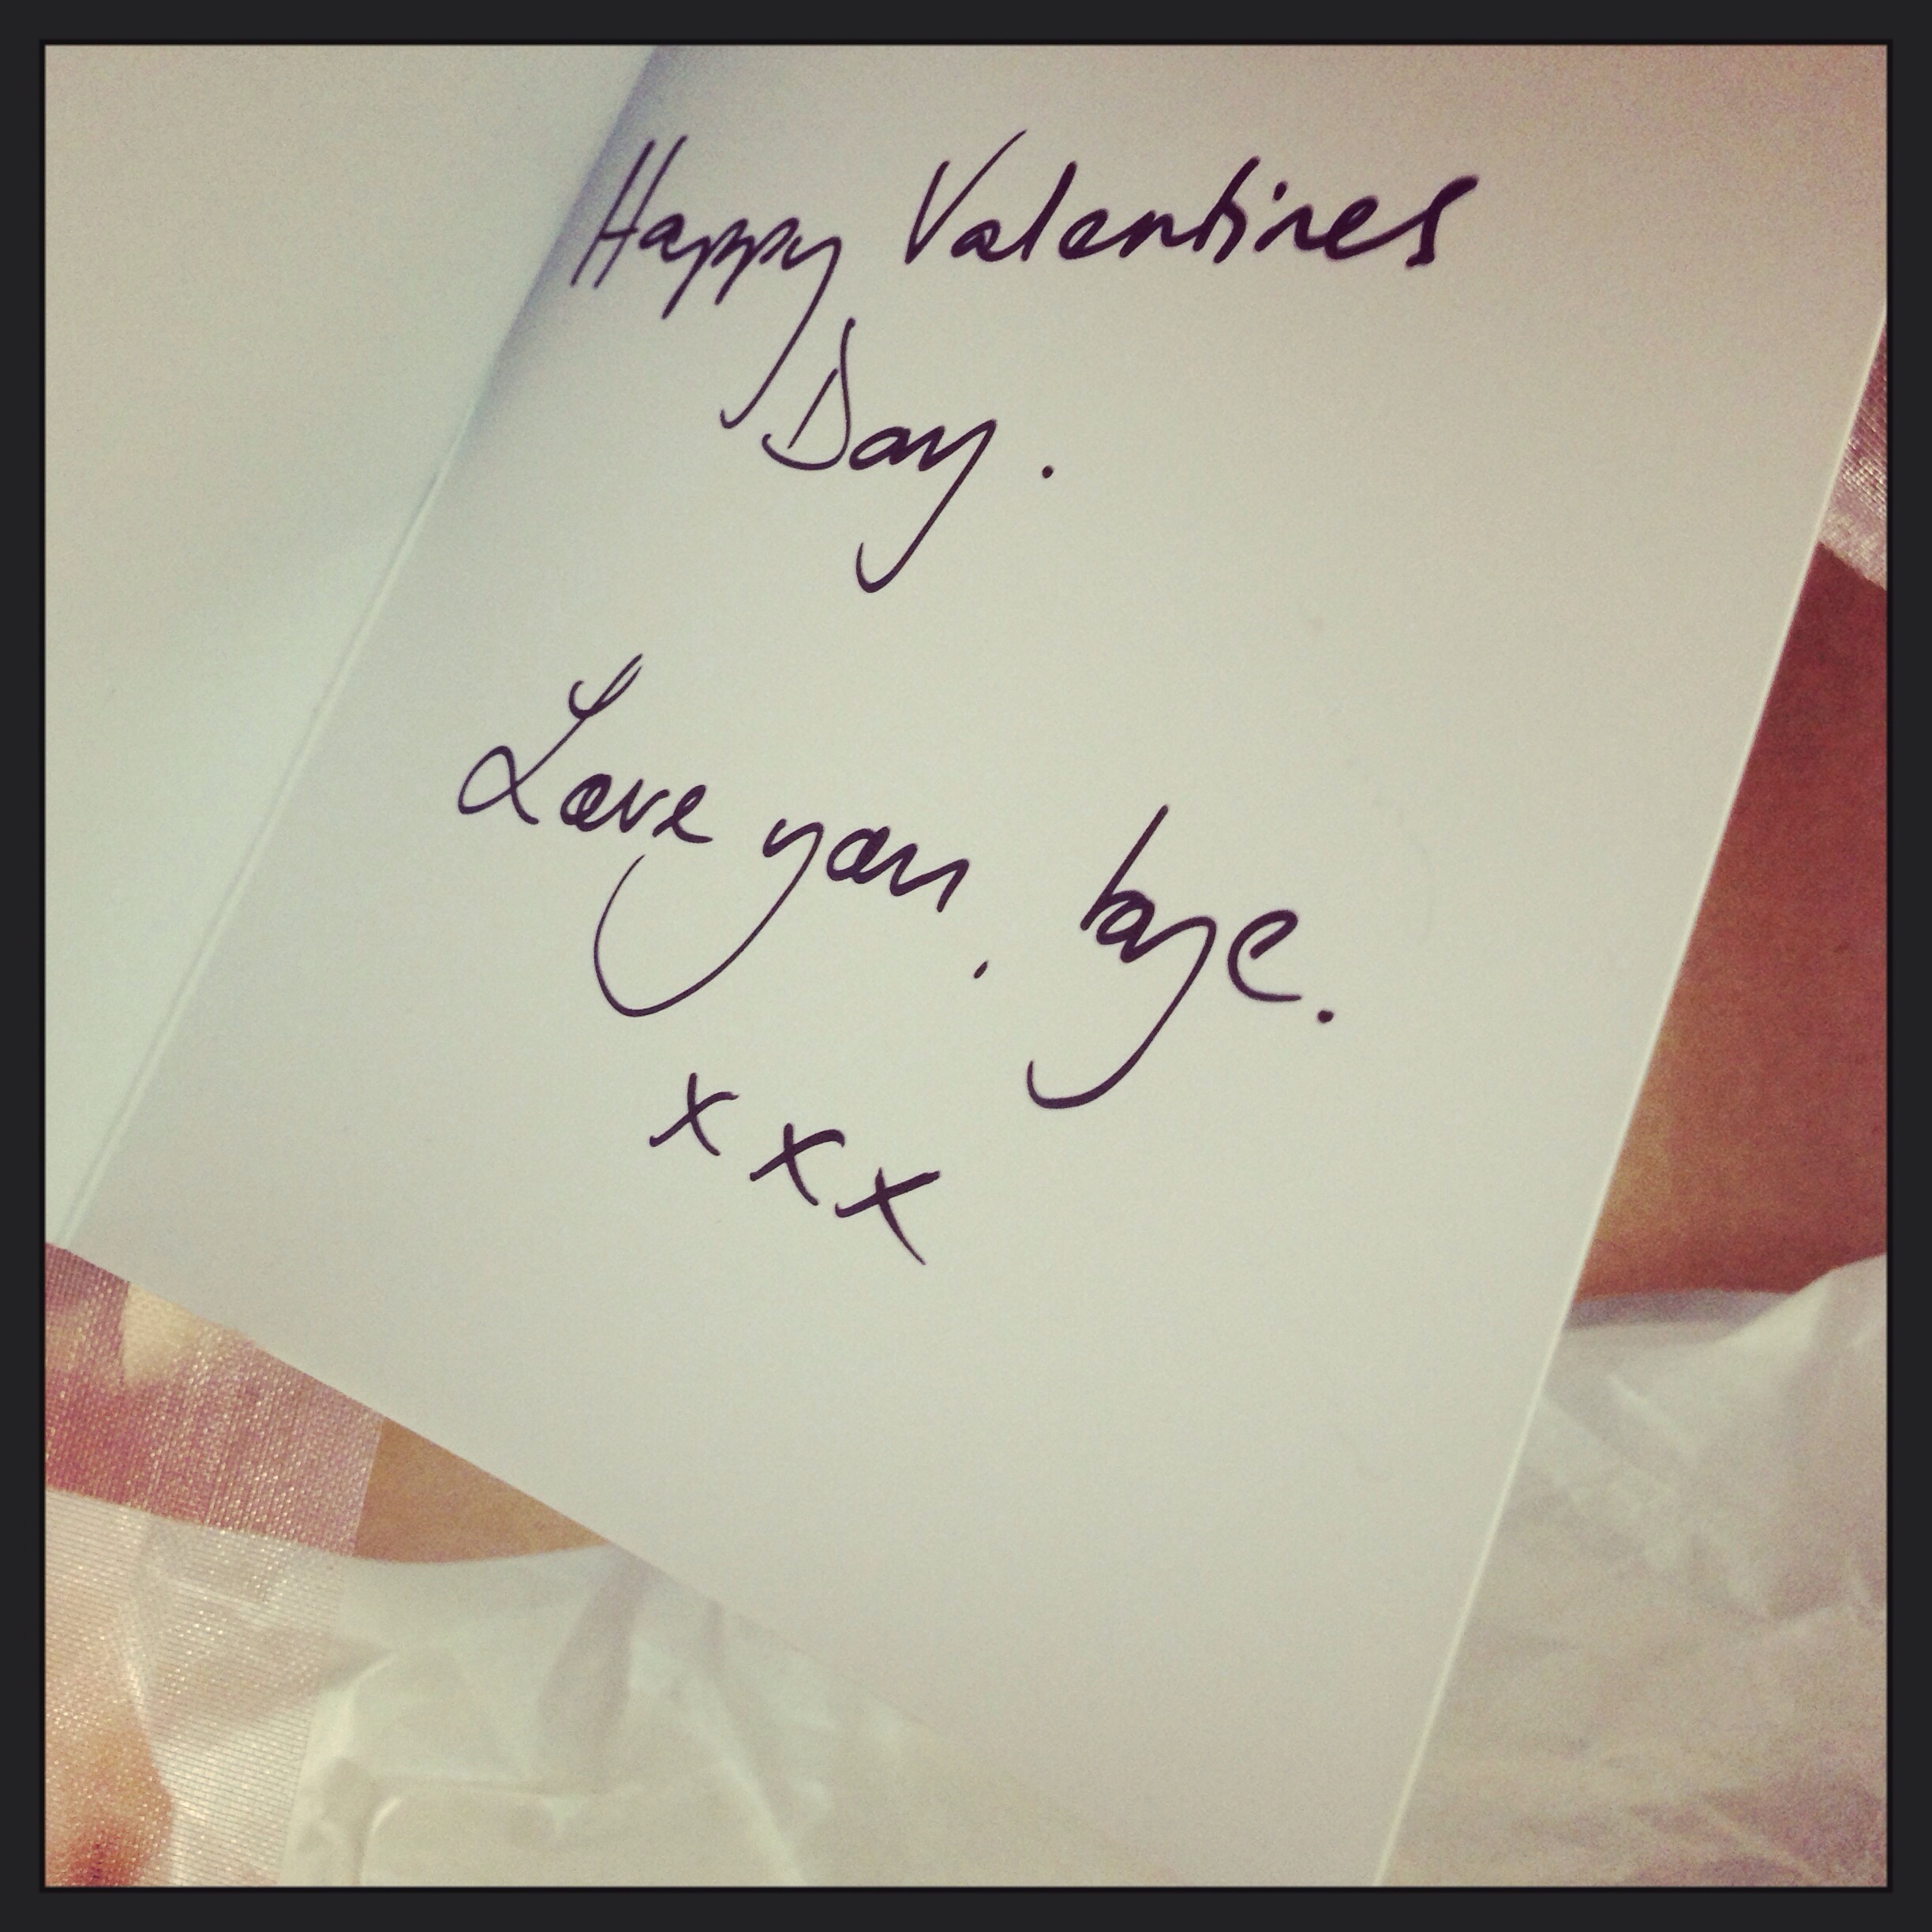 Happy Valentines
Day.
Love you, bye.
xxx